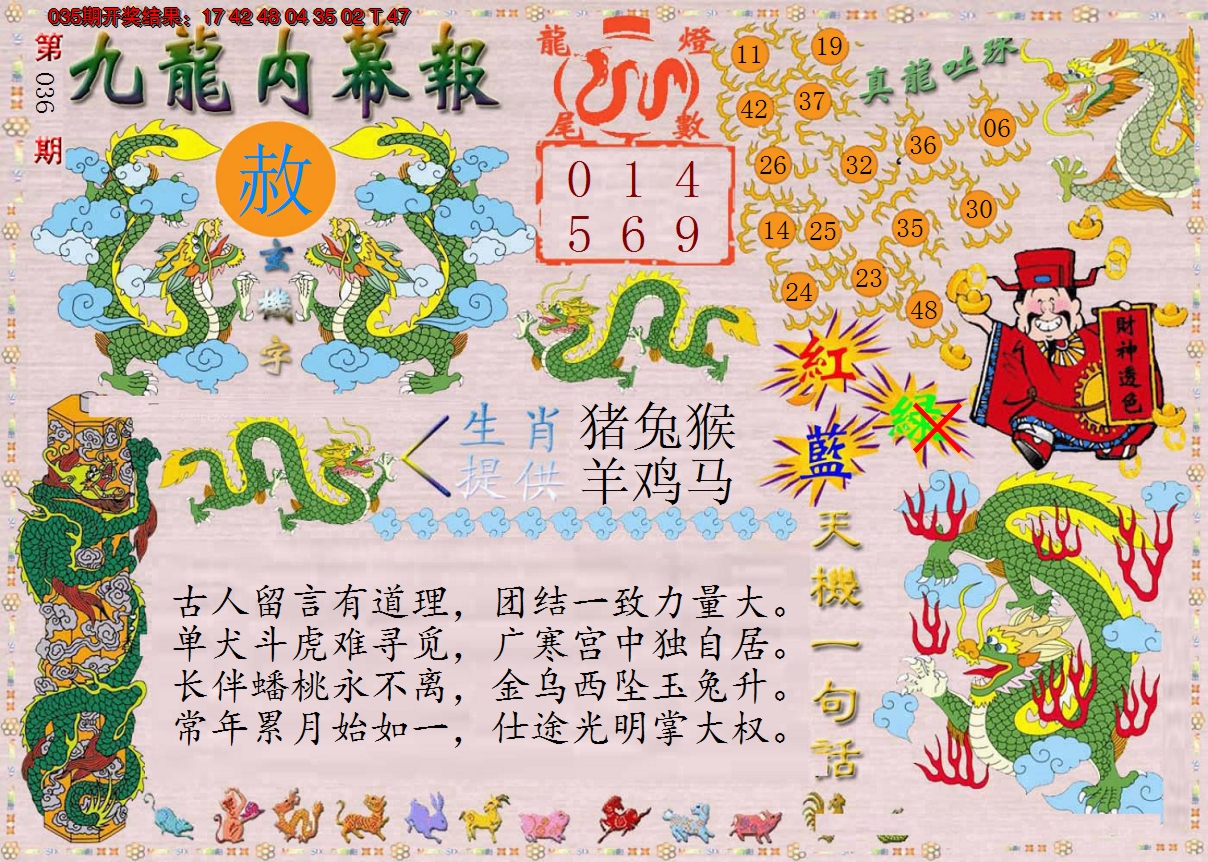 035期开奖结果：17 42 48 04 35 02 T 47
第036期
九龍内幕報
赦
玄機字
龍燈
尾數
0 1 4
5 6 9
真龍吐珠
11
19
42
37
26
32
36
06
14
25
35
30
24
23
48
財神透色
紅
綠
藍
生肖
提供
猪兔猴
羊鸡马
天機一句話
古人留言有道理，团结一致力量大。
单犬斗虎难寻觅，广寒宫中独自居。
长伴蟠桃永不离，金乌西坠玉兔升。
常年累月始如一，仕途光明掌大权。